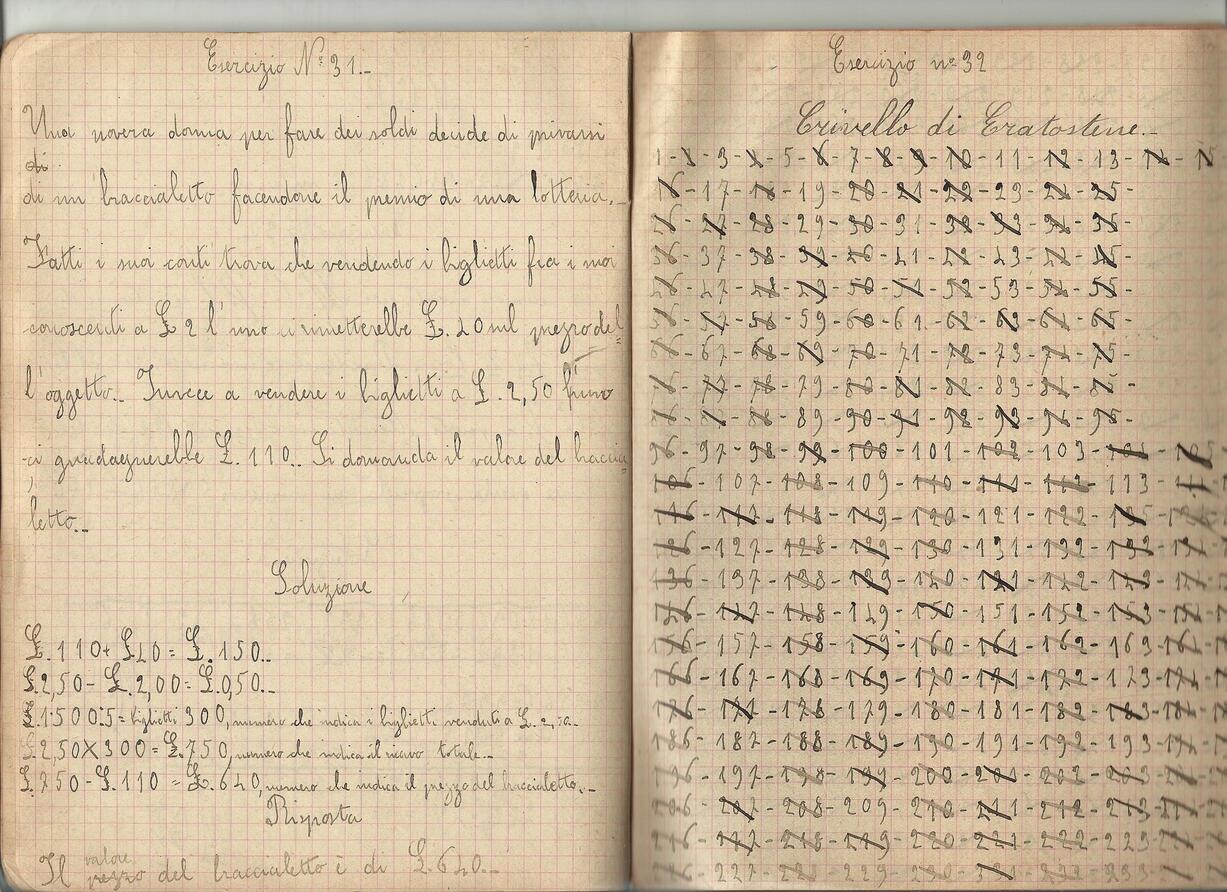 Esercizio N° 31.-
Una povera donna per fare dei soldi decide di privarsi
di
di un braccialetto facendone il premio di una lotteria.-
Fatti i suoi conti trova che vendendo i biglietti fra i suoi
conoscenti a £ 2 l'uno ci rimetterebbe £. 40 sul prezzo del-
l'oggetto.. Invece a vendere i biglietti a £. 2,50 l'uno
ci guadagnerebbe £. 110.. Si domanda il valore del braccia-
letto..
Soluzione
£. 110+ £40 = £. 150..
£.2,50 - £. 2,00 = £.0,50.-
£.1500:5 = biglietti 300, numero che indica i biglietti venduti a £. 2,50.-
£.2,50X300 = £.750, numero che indica il ricavo totale.-
£. 750 - £. 110 = £. 640, numero che indica il prezzo del braccialetto.-
Risposta
valore
Il prezzo del braccialetto è di £.640.-
Esercizio n° 32
Crivello di Eratostene.-
1 - 2 - 3 - 4 - 5 - 6 - 7 - 8 - 9 - 10 - 11 - 12 - 13 - 14 - 15
16 - 17 - 18 - 19 - 20 - 21 - 22 - 23 - 24 - 25 -
26 - 27 - 28 - 29 - 30 - 31 - 32 - 33 - 34 - 35 -
36 - 37 - 38 - 39 - 40 - 41 - 42 - 43 - 44 - 45 -
46 - 47 - 48 - 49 - 50 - 51 - 52 - 53 - 54 - 55 -
56 - 57 - 58 - 59 - 60 - 61 - 62 - 63 - 64 - 65 -
66 - 67 - 68 - 69 - 70 - 71 - 72 - 73 - 74 - 75 -
76 - 77 - 78 - 79 - 80 - 81 - 82 - 83 - 84 - 85 -
86 - 87 - 88 - 89 - 90 - 91 - 92 - 93 - 94 - 95 -
96 - 97 - 98 - 99 - 100 - 101 - 102 - 103 - 104 - 105
106 - 107 - 108 - 109 - 110 - 111 - 112 - 113 -
116 - 117 - 118 - 119 - 120 - 121 - 122 -
126 - 127 - 128 - 129 - 130 - 131 - 132 - 133 -
136 - 137 - 138 - 139 - 140 - 141 - 142 - 143 -
146 - 147 - 148 - 149 - 150 - 151 - 152 - 153 -
156 - 157 - 158 - 159 - 160 - 161 - 162 - 163 - 164 -
166 - 167 - 168 - 169 - 170 - 171 - 172 - 173 -
176 - 177 - 178 - 179 - 180 - 181 - 182 - 183 -
186 - 187 - 188 - 189 - 190 - 191 - 192 - 193 -
196 - 197 - 198 - 199 - 200 - 201 - 202 - 203 -
206 - 207 - 208 - 209 - 210 - 211 - 212 - 213 -
216 - 217 - 218 - 219 - 220 - 221 - 222 - 223 -
226 - 227 - 228 - 229 - 230 - 231 - 232 - 233